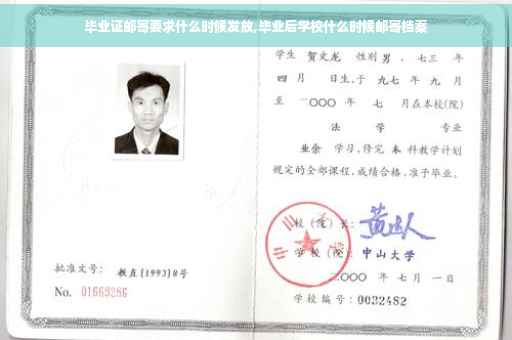 毕业证邮寄要求什么时候发放,毕业后学校什么时候邮寄档案
学生 贺文龙 性别 男 、七三 年
四 月 日生,于 九七 年 九 月
至 二〇〇〇 年 七 月在本校(院)
法 学 专业
业余 学习,修完 本 科教学计划
规定的全部课程,成绩合格,准予毕业。
校(院)长:
学 校(院): 中山大学
二〇〇〇 年 七 月 一 日
学校编号: 0032482
批准文号: 教直(1993)8号
No. 01669286